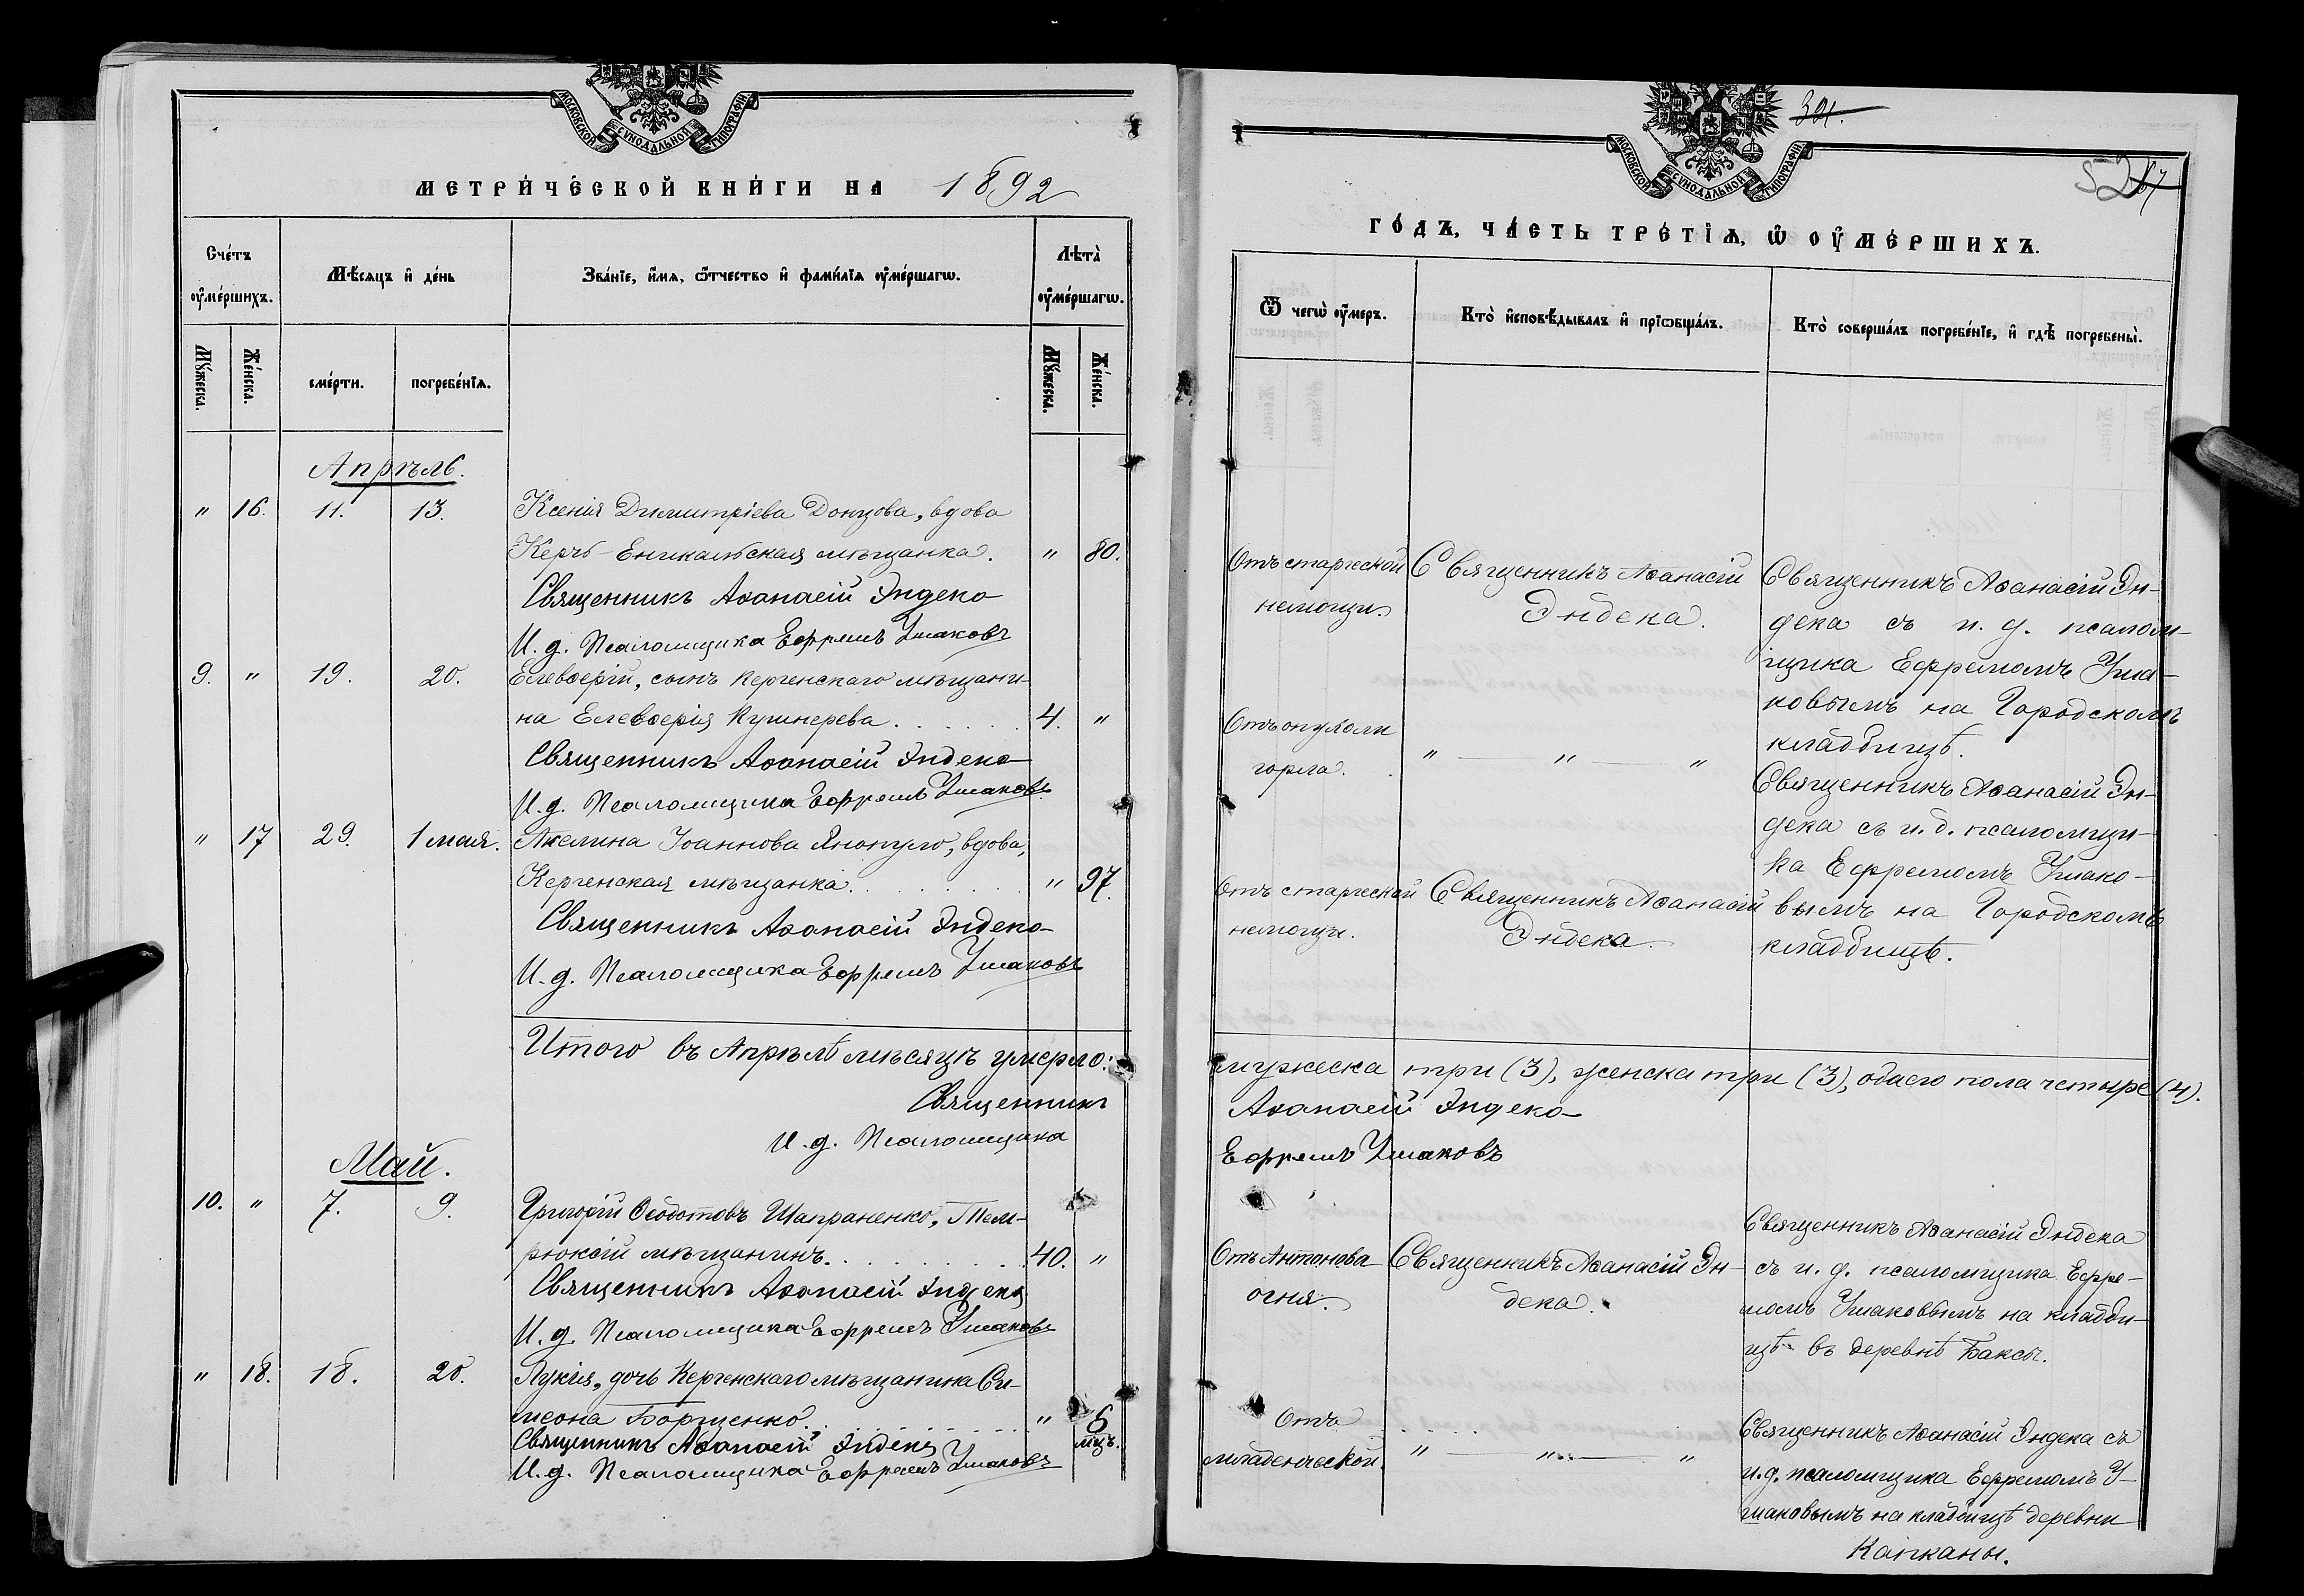 МОСКОВСКОЙ СУНОДАЛЬНОЙ ТИПОГРАФІИ
МЕТРИ́ЧЕСКОЙ КНИ́ГИ НА 1892
Сче́тъ оу҆ме́ршихъ.
Мѣ́сяцъ и҆ де́нь
Зва́нїе, и҆́мя, ѻ҆́тчество и҆ фами́лїя оу҆ме́ршагѡ.
Лѣта̀ оу҆ме́ршагѡ.
Мꙋ́жеска.
Же́нска.
сме́рти.
погребе́нїя.
Мꙋ́жеска.
Же́нска.
Апрѣль.
" 16. 11. 13. Ксенія Димитріева Донцова, вдова
Керчь-Еникальская мѣщанка. " 80.
Священникъ Аѳанасій Эндека
И. д. Псаломщика Ефремъ Ушаковъ
9. " 19. 20. Елевѳерій, сынъ Керченскаго мѣщани-
на Елевѳерія Кушнерева . . . . . 4. "
Священникъ Аѳанасій Эндека
И. д. Псаломщика Ефремъ Ушаковъ
" 17 29. 1 мая. Акелина Іоаннова Янопуло, вдова,
Керченская мѣщанка . . . . . . . " 97.
Священникъ Аѳанасій Эндека
И. д. Псаломщика Ефремъ Ушаковъ
Итого въ Апрѣлѣ мѣсяцѣ умерло:
Священникъ
И. д. Псаломщика
Май.
10. " 7. 9. Григорій Ѳеодотовъ Шапраненко, Тем-
рюкскій мѣщанинъ . . . . . . . 40. "
Священникъ Аѳанасій Эндека
И. д. Псаломщика Ефремъ Ушаковъ
" 18. 18. 20. Лукія, дочь Керченскаго мѣщанина Си-
меона Борщенко . . . . . . . . " 6 мцъ.
Священникъ Аѳанасій Эндека
И. д. Псаломщика Ефремъ Ушаковъ
МОСКОВСКОЙ СУНОДАЛЬНОЙ ТИПОГРАФІИ
391.
52
67
ГО́ДЪ, ЧА́СТЬ ТРЕ́ТІЯ, Ѡ҆ ОУ҆МЕ́РШИХЪ.
Ѿ чегѡ̀ оу҆́меръ.
Кто̀ и҆сповѣ́дывалъ и҆ прїѡбща́лъ.
Кто̀ соверша́лъ погребе́нїе, и҆ гдѣ̀ погребены̀.
Отъ старческой
немощи.
Священникъ Аѳанасій
Эндека.
Священникъ Аѳанасій Эн-
дека съ и. д. псалом-
щика Ефремомъ Уша-
ковымъ на Городскомъ
кладбищѣ.
Отъ опухоли
горла.
" " "
Священникъ Аѳанасій Эн-
дека съ и. д. псаломщи-
ка Ефремомъ Ушако-
вымъ на Городскомъ
кладбищѣ.
Отъ старческой
немощи.
Священникъ Аѳанасій
Эндека
мужеска три (3), женска три (3), обаего пола четыре (4).
Аѳанасій Эндека
Ефремъ Ушаковъ
Отъ Антонова
огня.
Священникъ Аѳанасій Эн-
дека.
Священникъ Аѳанасій Эндека
съ и. д. псаломщика Ефре-
момъ Ушаковымъ на кладби-
щѣ въ деревнѣ Баксы.
Отъ
младенческой.
" " "
Священникъ Аѳанасій Эндека съ
и. д. псаломщика Ефремомъ У-
шаковымъ на кладбищѣ деревни
Капканы.